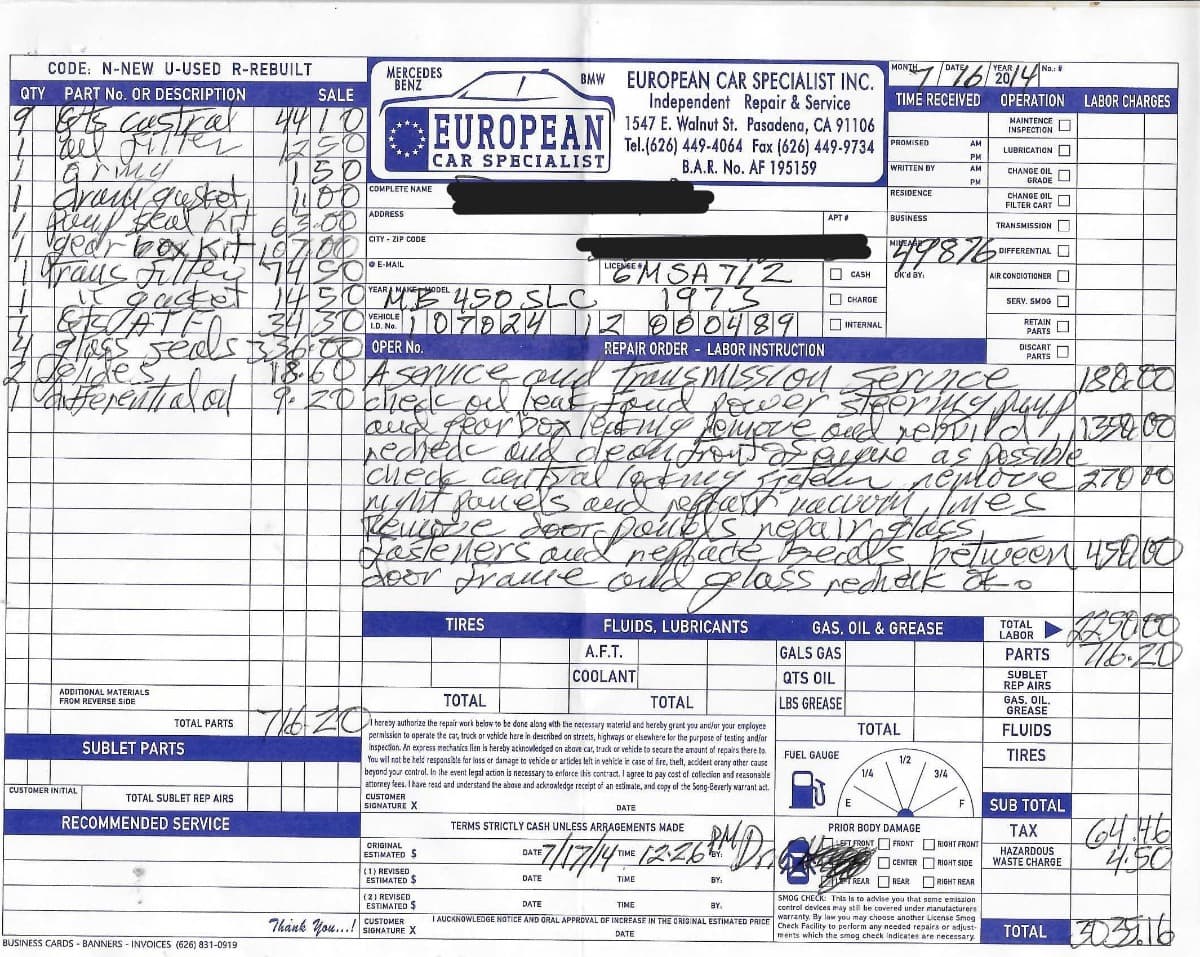 CODE: N-NEW U-USED R-REBUILT
QTY PART No. OR DESCRIPTION SALE
9 Qts castral 44 10
1 oil filter 12 50
1 1 50
1 drain gasket 1.00
1 pump seal Kit 63.00
1 gear box Kit 107.00
1 Trans filter 74 50
1 gasket 14 50
7 Qts ATF 34.30
4 glass seals 336.00
2 18.60
1 differential oil 9.20
ADDITIONAL MATERIALS
FROM REVERSE SIDE
TOTAL PARTS 716.20
SUBLET PARTS
CUSTOMER INITIAL
TOTAL SUBLET REP AIRS
RECOMMENDED SERVICE
Thank You...!
BUSINESS CARDS - BANNERS - INVOICES (626) 831-0919
MERCEDES
BENZ
BMW
EUROPEAN
CAR SPECIALIST
EUROPEAN CAR SPECIALIST INC.
Independent Repair & Service
1547 E. Walnut St. Pasadena, CA 91106
Tel.(626) 449-4064 Fax (626) 449-9734
B.A.R. No. AF 195159
MONTH 7 DATE 16 YEAR 2014 No.: #
TIME RECEIVED OPERATION LABOR CHARGES
PROMISED AM
PM
WRITTEN BY AM
PM
MAINTENCE
INSPECTION
LUBRICATION
CHANGE OIL
GRADE
CHANGE OIL
FILTER CART
TRANSMISSION
DIFFERENTIAL
AIR CONDITIONER
SERV. SMOG
RETAIN
PARTS
DISCART
PARTS
COMPLETE NAME
RESIDENCE
ADDRESS
APT #
BUSINESS
CITY - ZIP CODE
MILEAGE 49876
@ E-MAIL
LICENSE # 6MSA712
CASH
OK'd BY:
YEAR / MAKE / MODEL MB 450 SLC 1973
CHARGE
VEHICLE
I.D. No. 107024 12 000489
INTERNAL
OPER No. REPAIR ORDER - LABOR INSTRUCTION
A service and Transmission Service 180.00
check oil leak foud power steering pump
and gear box leaking remove and rebuild 1350.00
recheck and clean front of engine as possible
check central locking sistem remove 270 00
right panels and repair vacuum lines
Remove door panels repair glass
fasteners and replace seals between 450.00
door frame and glass recheck ok
TIRES FLUIDS, LUBRICANTS GAS, OIL & GREASE
TOTAL
LABOR 2250.00
A.F.T. GALS GAS PARTS 716.20
COOLANT QTS OIL SUBLET
REP AIRS
TOTAL TOTAL LBS GREASE GAS. OIL.
GREASE
TOTAL FLUIDS
TIRES
I hereby authorize the repair work below to be done along with the necessary material and hereby grant you and/or your employee
permission to operate the car, truck or vehicle here in described on streets, highways or elsewhere for the purpose of testing and/or
inspection. An express mechanics lien is hereby acknowledged on above car, truck or vehicle to secure the amount of repairs there to.
You will not be held responsible for loss or damage to vehicle or articles left in vehicle in case of fire, theft, accident orany other cause
beyond your control. In the event legal action is necessary to enforce this contract. I agree to pay cost of collection and reasonable
attorney fees. I have read and understand the above and acknowledge receipt of an estimate, and copy of the Song-Beverly warrant act.
CUSTOMER
SIGNATURE X DATE
FUEL GAUGE
E 1/4 1/2 3/4 F
SUB TOTAL
TERMS STRICTLY CASH UNLESS ARRAGEMENTS MADE
ORIGINAL
ESTIMATED $ DATE 7/17/14 TIME 12:26 PM BY:
(1) REVISED
ESTIMATED $ DATE TIME BY:
(2) REVISED
ESTIMATED $ DATE TIME BY.
CUSTOMER
SIGNATURE X
I AUCKNOWLEDGE NOTICE AND ORAL APPROVAL OF INCREASE IN THE ORIGINAL ESTIMATED PRICE
DATE
PRIOR BODY DAMAGE
LEFT FRONT FRONT RIGHT FRONT
CENTER RIGHT SIDE
LEFT REAR REAR RIGHT REAR
SMOG CHECK: This is to advise you that some emission
control devices may still be covered under manufacturers
warranty. By law you may choose another License Smog
Check Facility to perform any needed repairs or adjust-
ments which the smog check indicates are necessary.
TAX 64.46
HAZARDOUS
WASTE CHARGE 4.50
TOTAL 3035.16